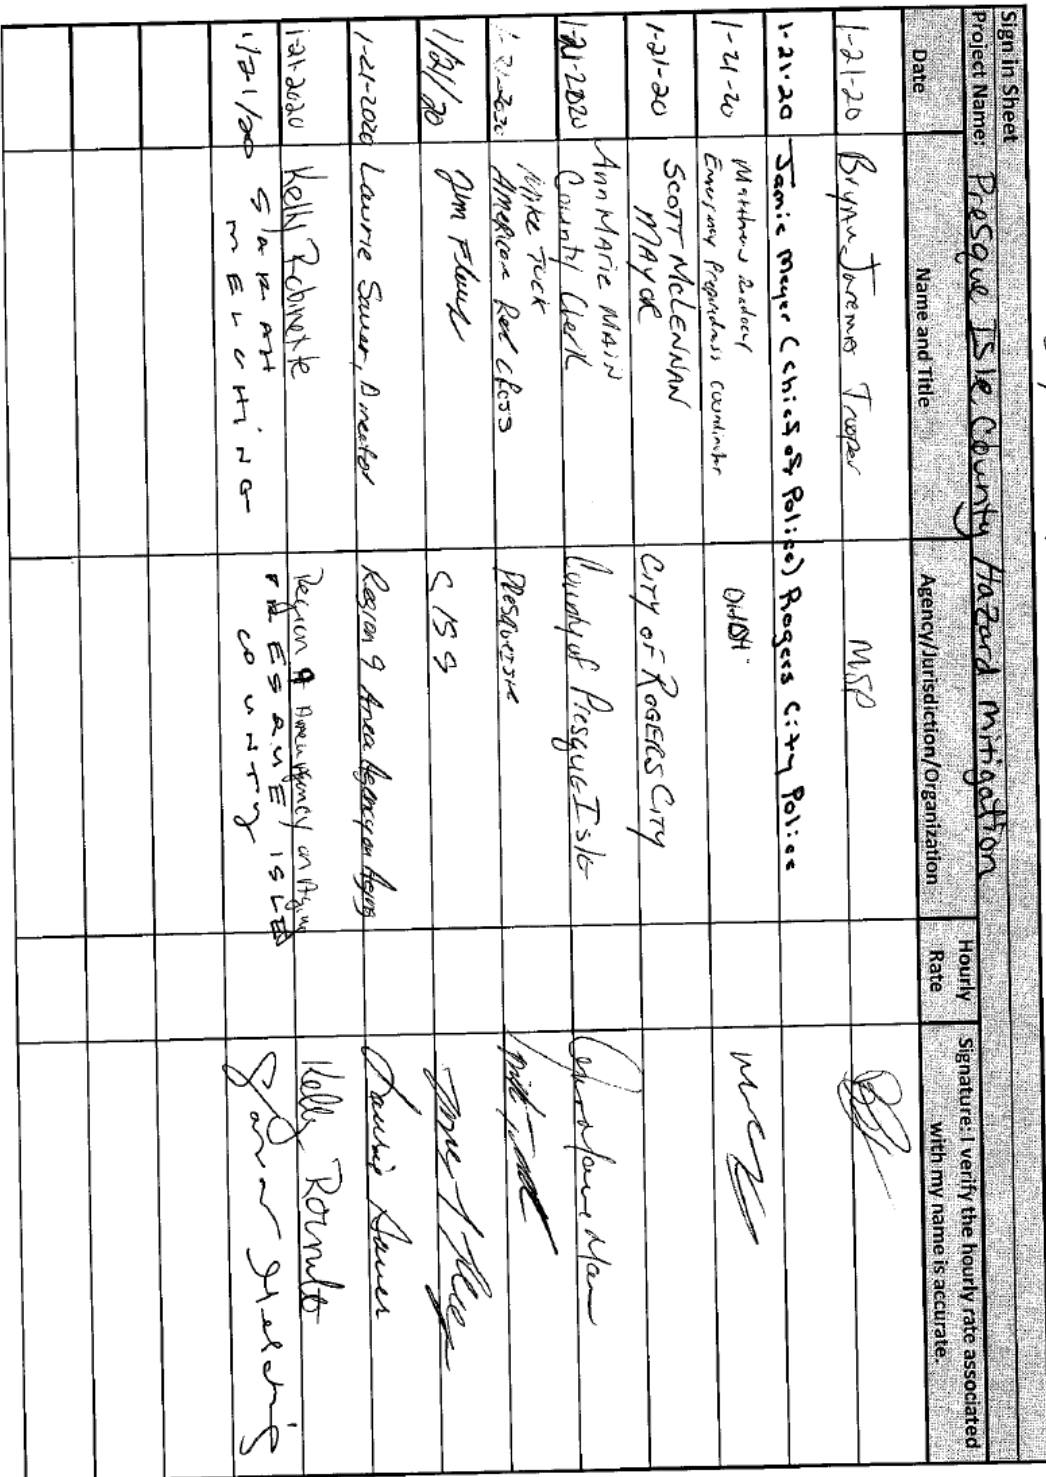 Sign in Sheet
Project Name: Presque Isle County Hazard Mitigation
Date Name and Title Agency/Jurisdiction/Organization Hourly Rate Signature: I verify the hourly rate associated with my name is accurate.
1-21-20 Trooper MSP
1-21-20 Jamie Meyer (Chief of Police) Rogers City Police
1-21-20 Matthew
Emergency Preparedness Coordinator
1-21-20 SCOTT McLENNAN CITY OF ROGERS CITY
MAYOR
1-21-2020 Ann Marie MAIN County of Presque Isle
County Clerk
1-21-2020 Mike Tuck PresqueIsle
American Red Cross
1/21/20 Jim
1-21-2020 Laurie Sauer, Director Region 9 Area Agency on Aging Laurie Sauer
1-21-2020 Kelly Robinette Region 9 Area Agency on Aging Kelly
1/21/20 SARAH MELCHING PRESQUE ISLE COUNTY Sarah Melching